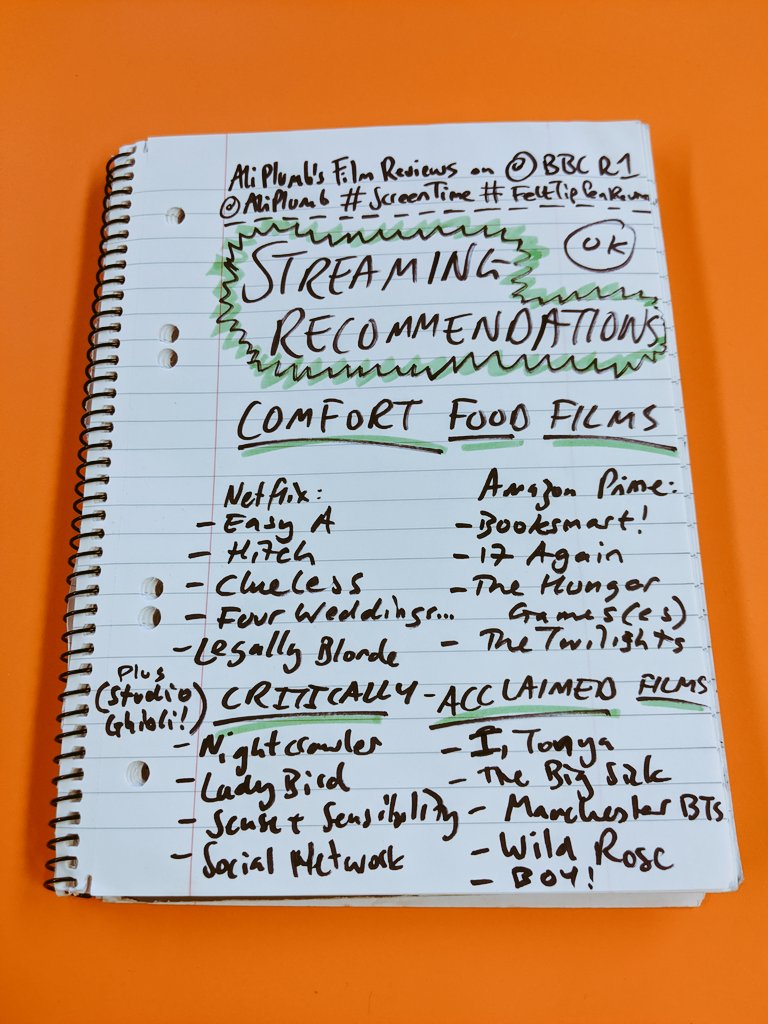 Ali Plumb's Film Reviews on @ BBC R1
@AliPlumb #ScreenTime #FeltTipPenReview
UK
STREAMING
RECOMMENDATIONS
COMFORT FOOD FILMS
Netflix:
- Easy A
- Hitch
- Clueless
- Four Weddings...
- Legally Blonde
Plus
(Studio
Ghibli!)
Amazon Prime:
- Booksmart!
- 17 Again
- The Hunger
Games(es)
- The Twilights
CRITICALLY-ACCLAIMED FILMS
- Nightcrawler
- Lady Bird
- Sense + Sensibility
- Social Network
- I, Tonya
- The Big Sick
- Manchester BTS
- Wild Rose
- BOY!